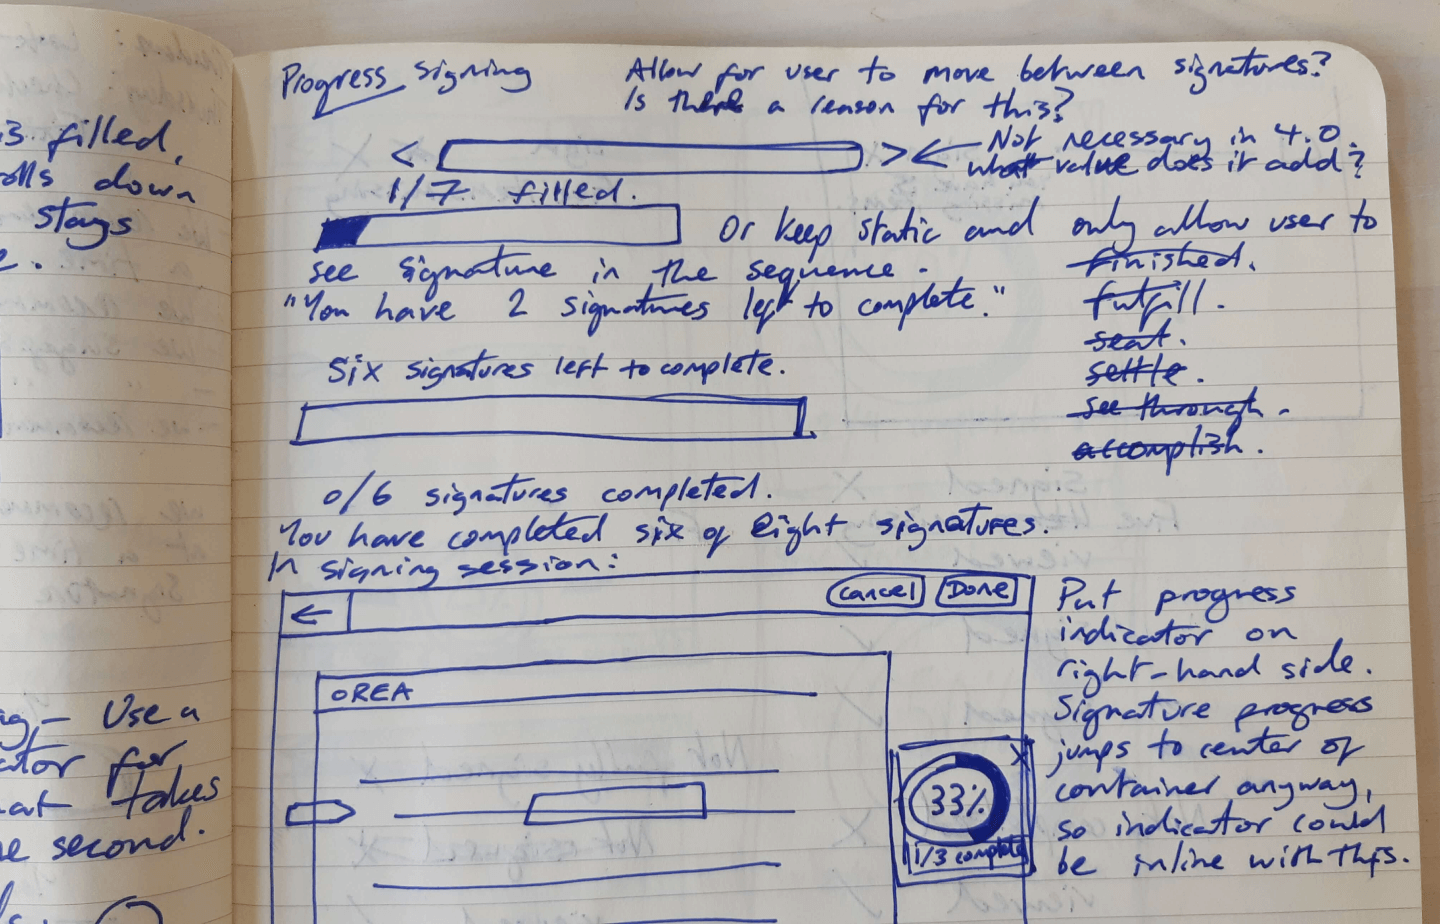 3 filled,
olls down
stays
e.
Use a
ator for
at takes
e second.
Progress Signing
Allow for user to move between signatures?
Is there a reason for this?
< >
Not necessary in 4.0.
what value does it add?
1/7 filled.
Or keep static and only allow user to
see signature in the sequence.
"You have 2 signatures left to complete."
finished.
fulfill.
seat.
settle.
see through.
accomplish.
Six signatures left to complete.
0/6 signatures completed.
You have completed six of eight signatures.
In signing session:
Cancel Done
OREA
33%
1/3 complete
X
Put progress
indicator on
right-hand side.
Signature progress
jumps to center of
container anyway,
so indicator could
be inline with this.